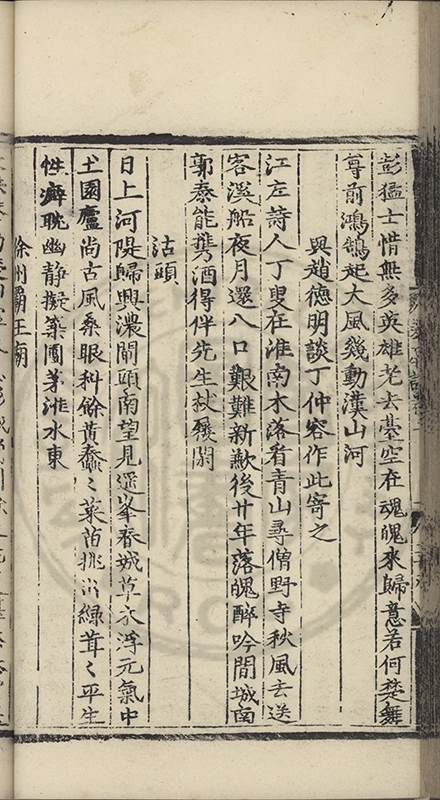 彭猛士惜無多英雄老去臺空在魂魄來歸意若何楚舞
尊前鴻鵠起大風幾動漢山河
與趙德明談丁仲容作此寄之
江左詩人丁叟在淮南木落看青山尋僧野寺秋風去送
客溪船夜月還八口艱難新歉後廿年落魄醉吟間城南
郭泰能携酒得伴先生
沽頭
日上河隄歸興濃閘頭南望見遥峯春城草木浮元氣中
土園廬尚古風桑眼科餘黃蠢〻菜苗挑出綠茸〻平生
性癖耽幽静擬築團茅泗水東
徐州霸王廟